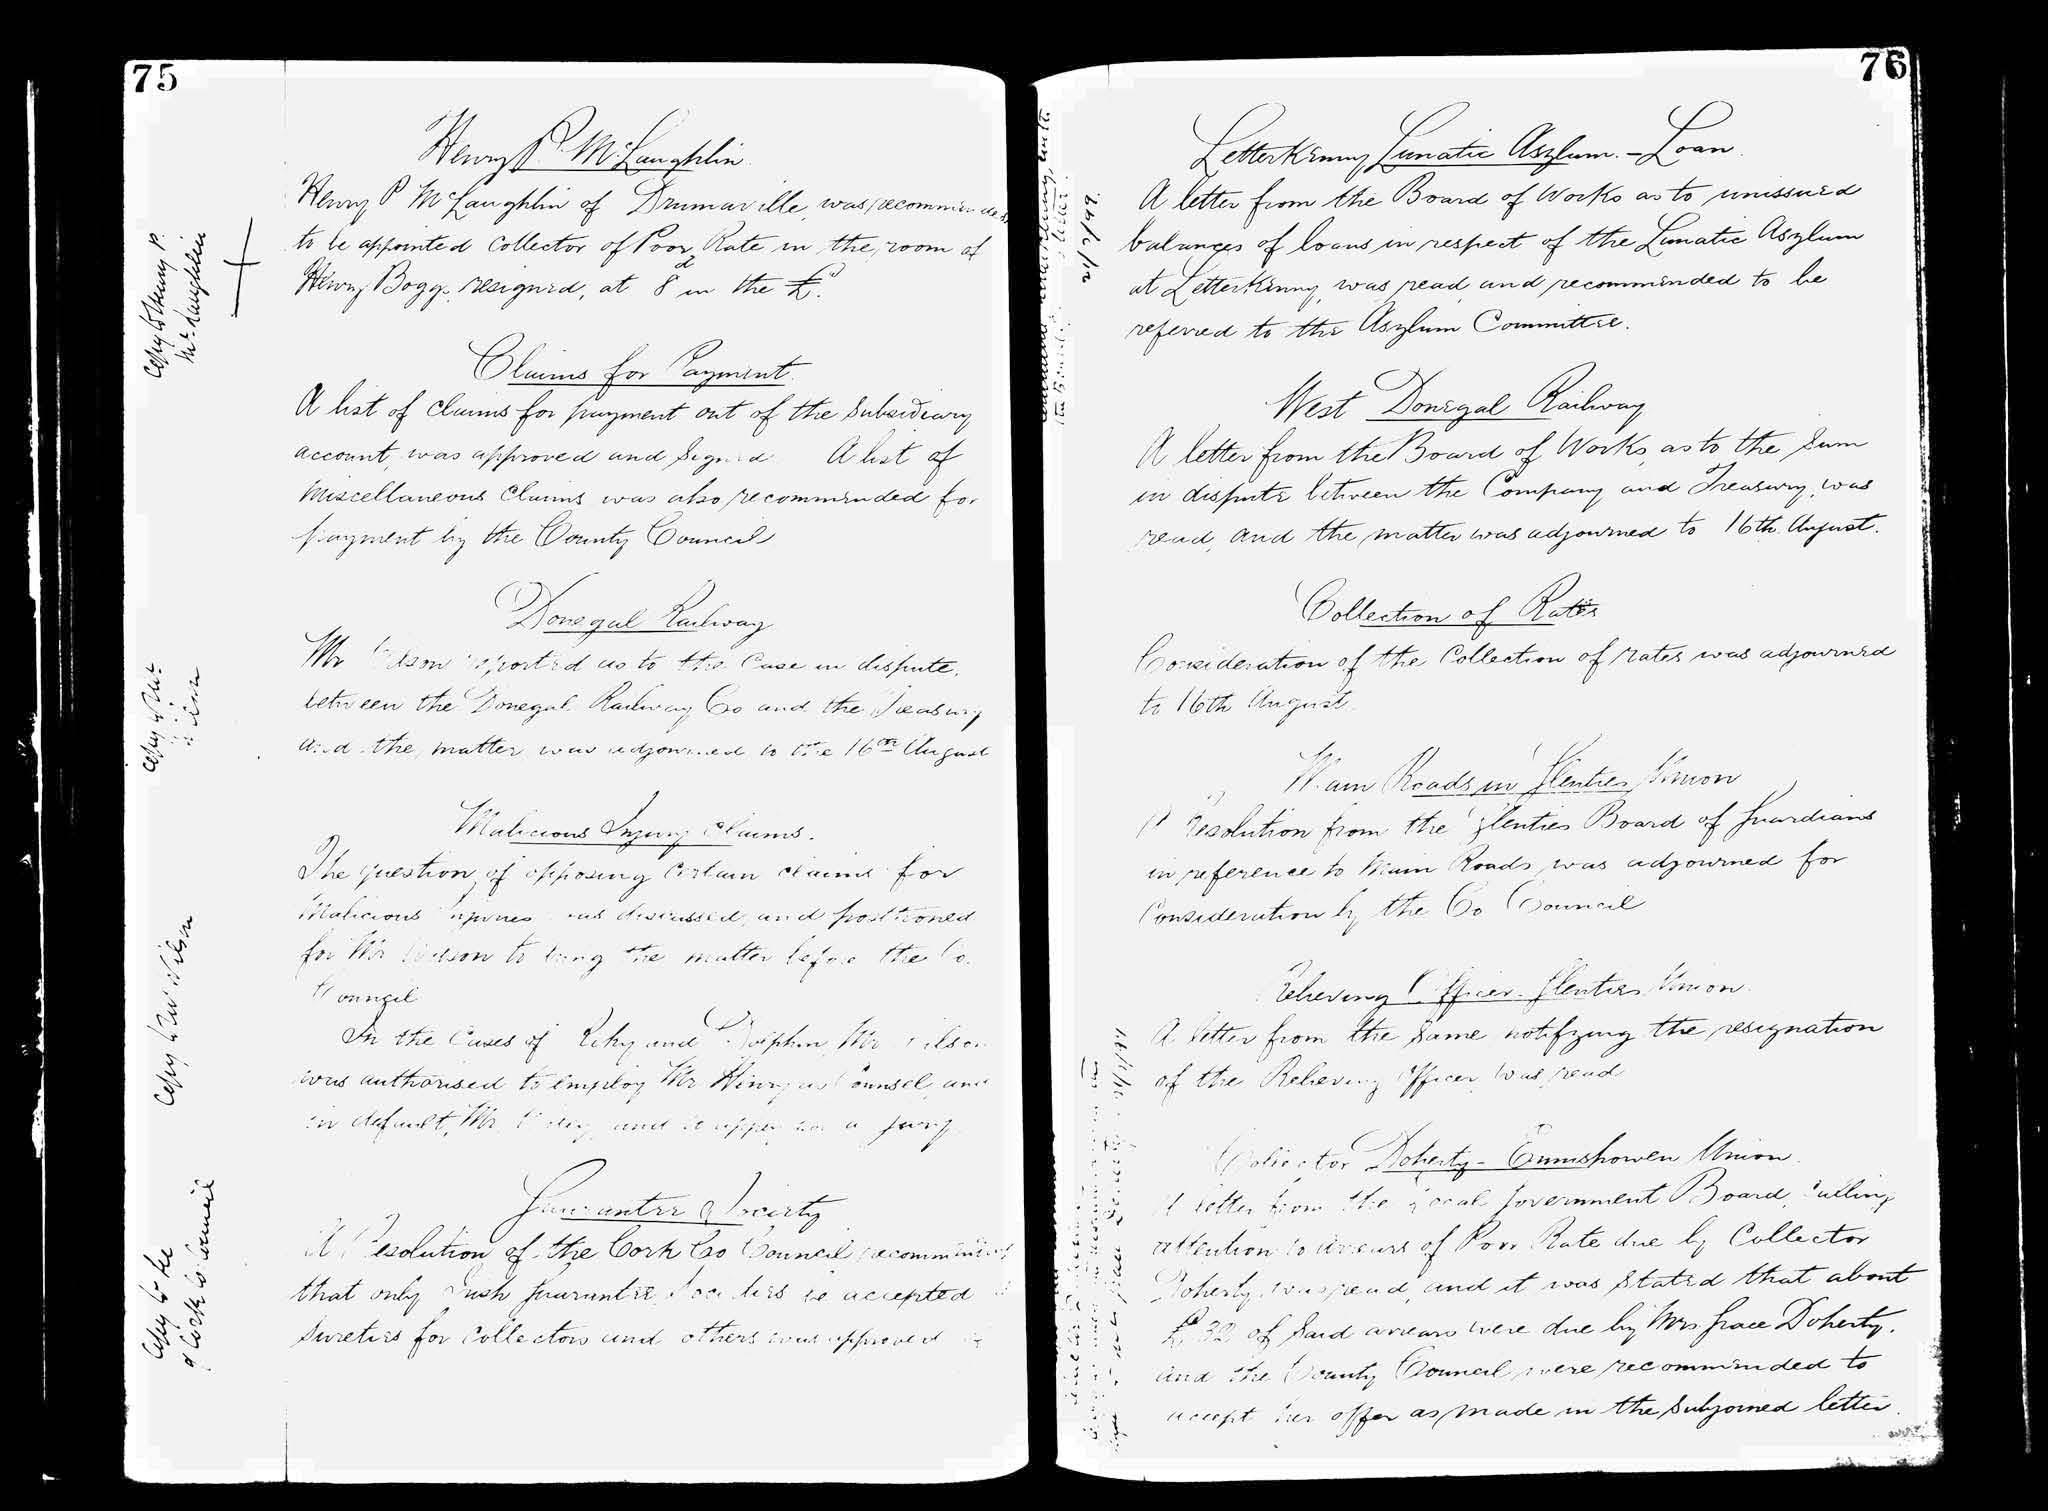 75
Henry P. McLaughlin
Henry P McLaughlin of Drumaville, was recommended
to be appointed Collector of Poor Rate in the room of
Henry Boggs, resigned, at 8d in the £.
Copy to Henry P.
McLaughlin
Claims for Payment.
A list of claims for payment out of the Subsidiary
account, was approved and signed A list of
Miscellaneous Claims was also recommended for
payment by the County Council
Donegal Railway
Mr Wilson reported as to the case in dispute,
between the Donegal Railway Co and the Treasury
and the matter was adjourned to the 16th August
Copy to Mr
Wilson
Malicious Injury Claims.
The question of opposing certain claims for
Malicious Injuries was discussed, and postponed
for Mr Wilson to bring the matter before the Co.
Council
In the Cases of and Dolphin, Mr Wilson
was authorised to employ Mr Henry as Counsel, and
in default, Mr and to apply for a jury
Copy to Mr Wilson
Guarantee Society
A Resolution of the Cork Co Council recommending
that only Irish Guarantee Societies be accepted as
Sureties for Collectors and others was approved of
Copy to Sec
of Cork Co Council
76
Letterkenny Lunatic Asylum. - Loan.
A letter from the Board of Works as to unissued
balances of loans in respect of the Lunatic Asylum
at Letterkenny, was read, and recommended to be
referred to the Asylum Committee.
West Donegal Railway
A letter from the Board of Works, as to the Sum
in dispute between the Company and Treasury, was
read, and the matter was adjourned to 16th August.
Collection of Rates
Consideration of the Collection of rates was adjourned
to 16th August.
Main Roads in Glenties Union
A Resolution from the Glenties Board of Guardians
in reference to Main Roads, was adjourned for
Consideration by the Co Council
Relieving Officer - Glenties Union.
A letter from the Same notifying the resignation
of the Relieving Officer, was read
Collector Doherty - Ennishowen Union.
A letter from the Local Government Board, calling
attention to arrears of Poor Rate due by Collector
Doherty, was read, and it was stated that about
£32 of said arrears were due by Mrs Grace Doherty,
and the County Council were recommended to
accept her offer as made in the subjoined letter.